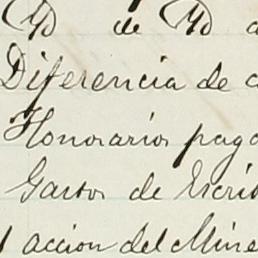 Yd de Yd
Diferencia de
Honorarios pag
Gastos de Escri
1 accion del Mine